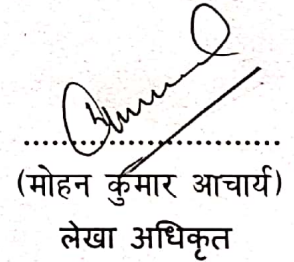 ....................................
(मोहन कुमार आचार्य)
लेखा अधिकृत